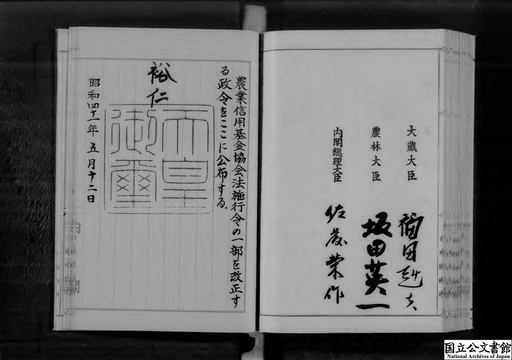 大蔵大臣 福田赳夫
農林大臣 坂田英一
内閣総理大臣 佐藤栄作
農業信用基金協会法施行令の一部を改正す
る政令をここに公布する。
裕仁
天皇
御璽
昭和四十一年五月十二日
国立公文書館
National Archives of Japan